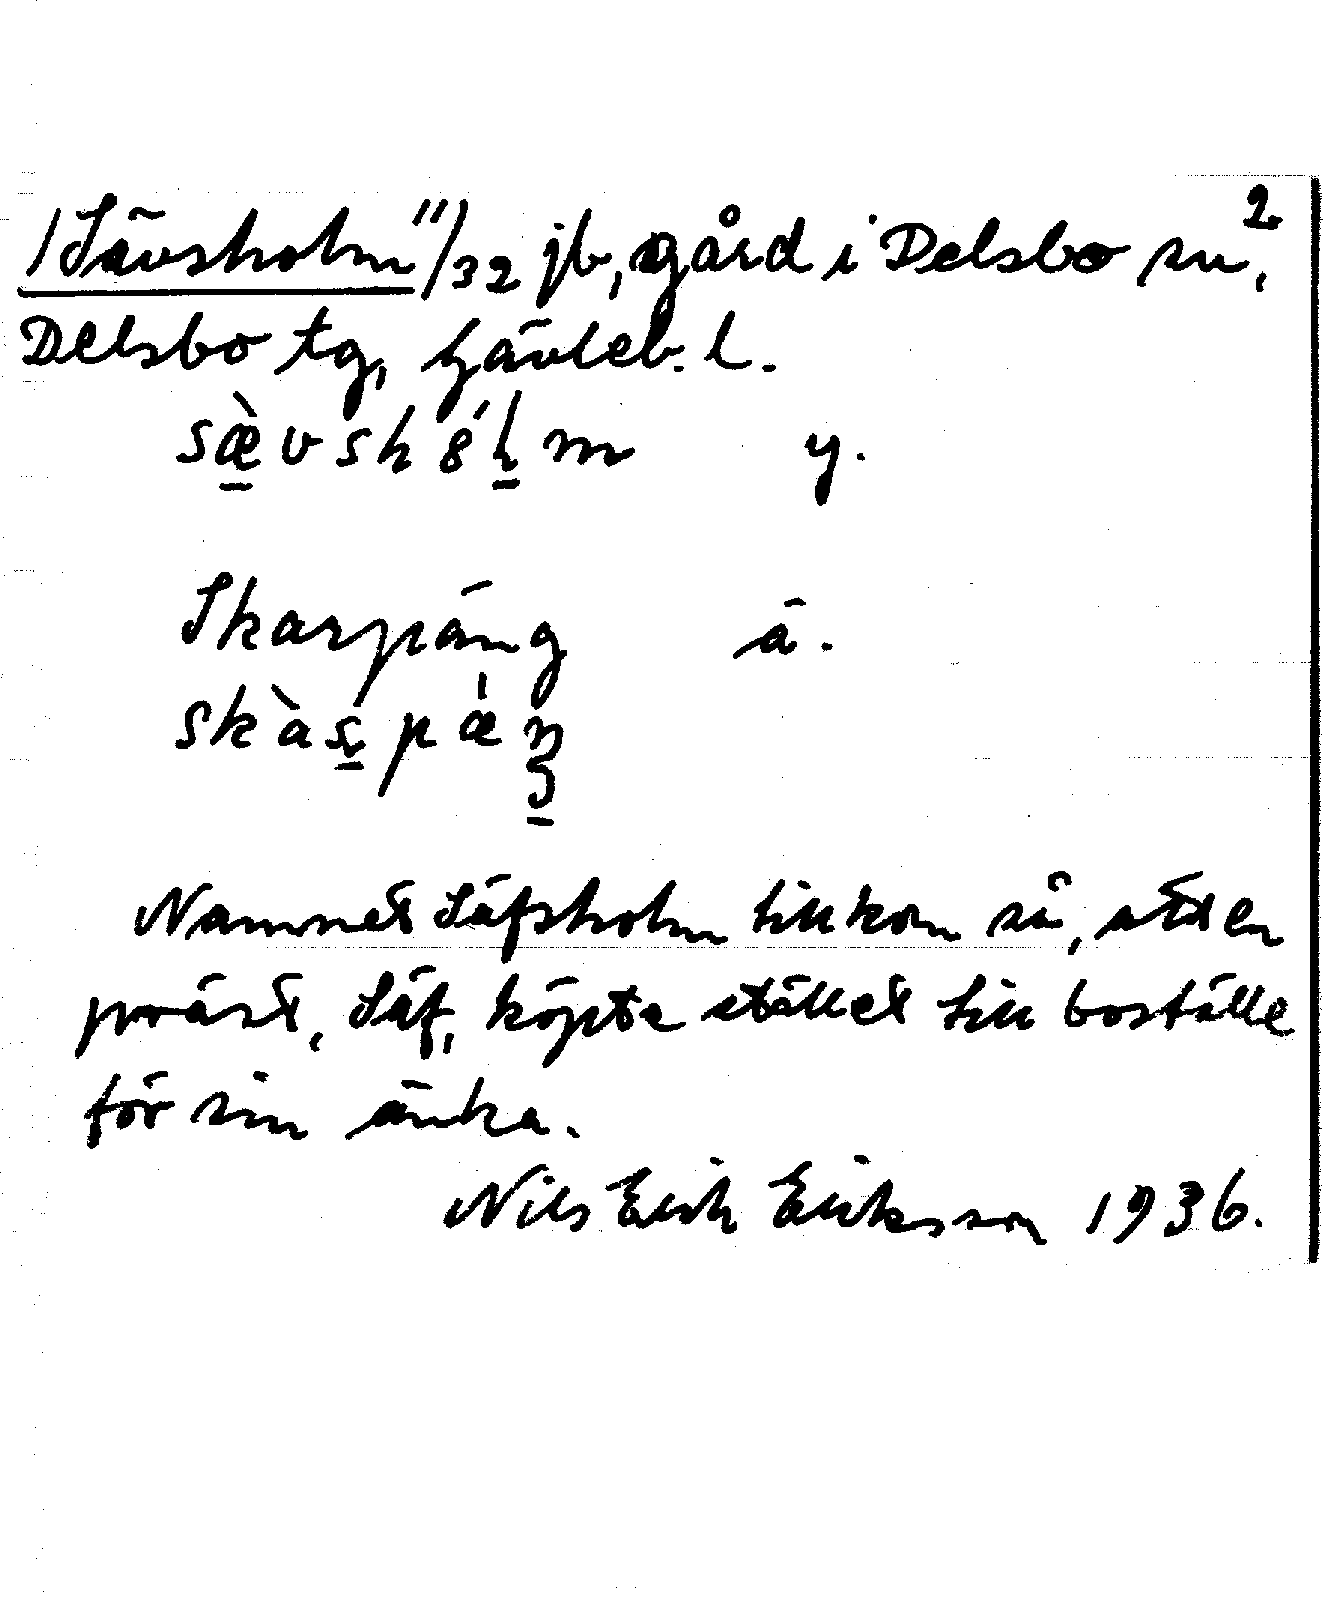 /Sävsholm 11/32 jb, gård i Delsbo sn, 2
Delsbo tg, Gävleb. l.
sæ̀vshó̤ḷm y.
Skarpäng ä.
skàṣpæ̀ŋ
Namnet Säfsholm tillkom så, att en
präst, Säf, köpte stället till boställe
för sin änka.
Nils Erik Eriksson 1936.